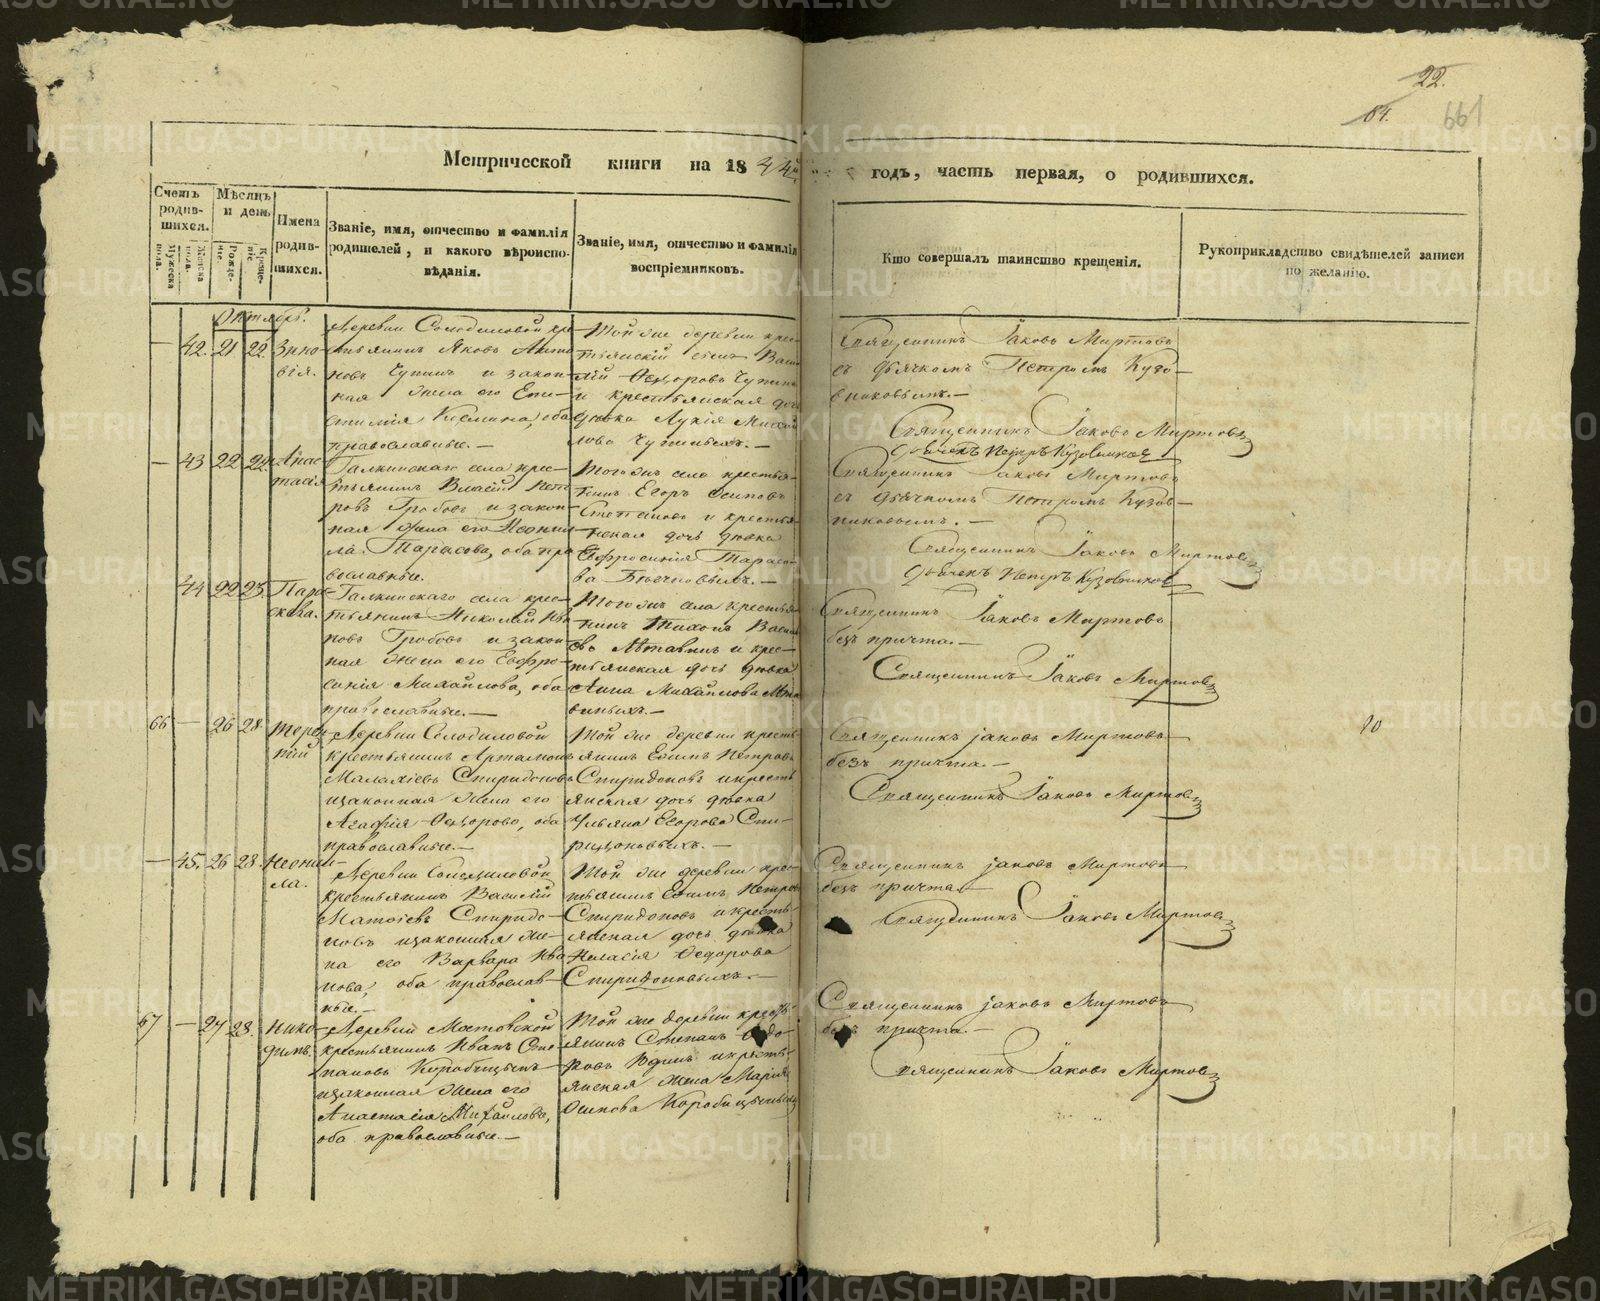 22.
84.
661
Метрической книги на 1844й годъ, часть первая, о родившихся.
Счетъ родившихся.
Мужеска пола.
Женска пола.
Мѣсяцъ и день
Рожденіе
Крещеніе
Имена родившихся.
Званіе, имя, отчество и фамилія родителей, и какого вѣроисповѣданія.
Званіе, имя, отчество и фамилія воспріемниковъ.
Кто совершалъ таинство крещенія.
Рукоприкладство свидѣтелей записи по желанію.
Октябрь.
— 42. 21 22
Зино
вія.
Деревни Солодиловой кре
стьянинъ Яковъ
новъ Чупинъ и закон-
ная жена его
оба
православные. —
Той же деревни крес-
тьянскій сынъ Васи
лій Ѳедоровъ Чупинъ
и крестьянская дочь
дѣвка Лукія Михай
лова Чупиныхъ. —
Священникъ Іаковъ Миртовъ
съ дьячкомъ Петромъ Кузо-
вниковымъ. —
Священникъ Іаковъ Миртовъ
дьячекъ Петръ Кузовников
— 43 22 22
Анас-
тасія
Галкинскаго села крес-
тьянинъ Власій Пет
ровъ Гробовъ и закон-
ная жена его Неони-
ла Тарасова, оба пра
вославные.
Того же села крестья-
нинъ Егоръ Осиповъ
Степановъ и крестья-
нская дочь дѣвка
Евфросинія Тарасо-
ва
Священникъ Іаковъ Миртовъ
съ дьячкомъ Петромъ Кузов-
никовымъ. —
Священникъ Іаковъ Миртовъ
дьячекъ Петръ Кузовников
44 22 23.
Пара-
скева.
Галкинскаго села крес-
тьянинъ Николай Ива
новъ Гробовъ и закон-
ная жена его Евфро-
синія Михайлова, оба
православные. —
Того же села крестья-
нинъ Тихонъ Васил
и крес-
тьянская дочь дѣвка
Анна Михайлова
Священникъ Іаковъ Миртовъ
безъ причта. —
Священникъ Іаковъ Миртовъ
66 — 26 28
Терен
тій
Деревни Солодиловой
крестьянинъ Артамонъ
Малахіевъ Спиридоновъ
и законная жена его
Агафія Ѳедорова, оба
православные. —
Той же деревни кресть-
янинъ Ефимъ Петровъ
Спиридоновъ и кресть
янская дочь дѣвка
Ульяна Егорова Спи-
ридоновыхъ. —
Священникъ Іаковъ Миртовъ
безъ причта. —
Священникъ Іаковъ Миртовъ
10
— 45. 26 28
Неони-
ла.
Деревни Солодиловой
крестьянинъ Василій
Матѳіевъ Спиридо-
новъ и законная же-
на его Варвара Ива
нова, оба православ-
ные. —
Той же деревни крес-
тьянинъ Ефимъ Петров
Спиридоновъ и кресть-
янская дочь дѣвка
Пелагія Ѳедорова
Спиридоновыхъ. —
Священникъ Іаковъ Миртовъ
безъ причта. —
Священникъ Іаковъ Миртовъ
67 — 27 28.
Нико-
димъ.
Деревни
крестьянинъ Иванъ Сте
пановъ Коробицынъ
и законная жена его
Анастасія Михайлова,
оба православные. —
Той же деревни кресть
янинъ Степанъ
и кресть-
янская жена Марія
Осипова Коробицыны
Священникъ Іаковъ Миртовъ
безъ причта. —
Священникъ Іаковъ Миртовъ
METRIKI.GASO-URAL.RU